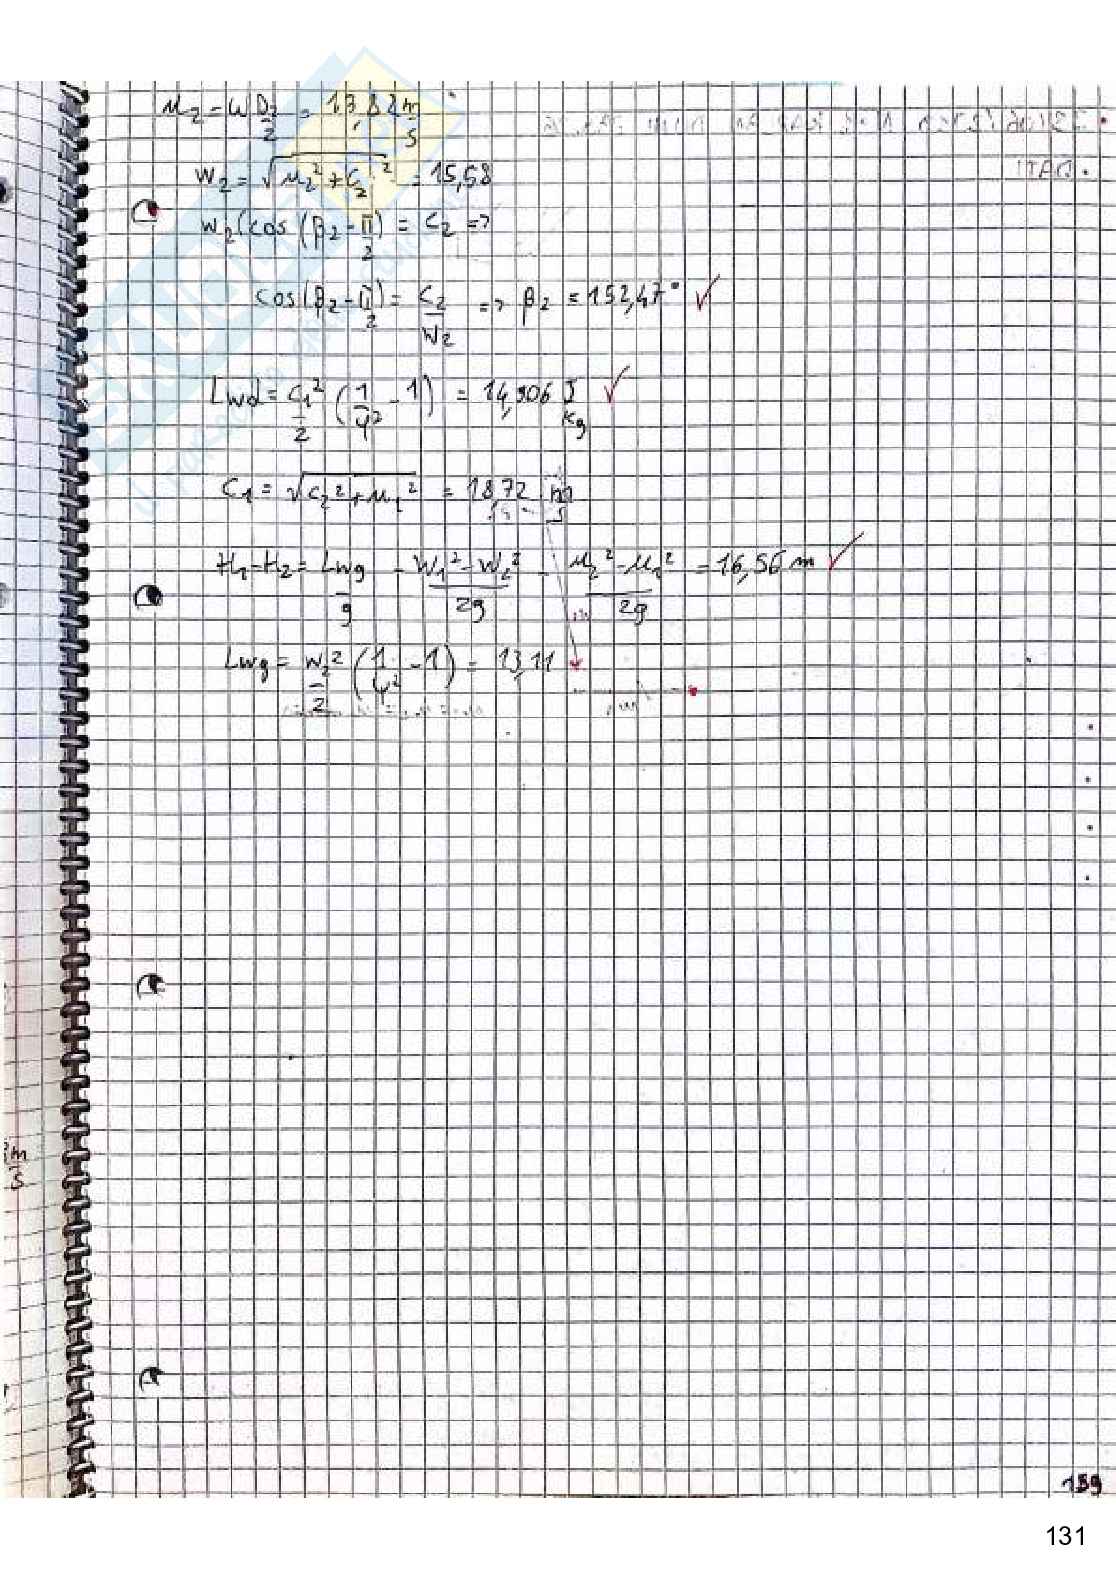 u₂ = ω D₂/2 = 13,82 m/s
w₂ = √(u₂² + c₂²) = 15,58
w₂ (cos (β₂ - π/2) = c₂ =>
cos (β₂ - π/2) = c₂/w₂ => β₂ = 152,47° ✓
Lwd = c₁²/2 (1/φ² - 1) = 14,906 J/kg ✓
c₁ = √(c₂² + u₁²) = 18,72 m/s
H₁ - H₂ = Lwg/g - (w₁² - w₂²)/2g - (u₂² - u₁²)/2g = 16,56 m ✓
Lwg = w₂²/2 (1/ψ² - 1) = 13,11
m/s
159
131